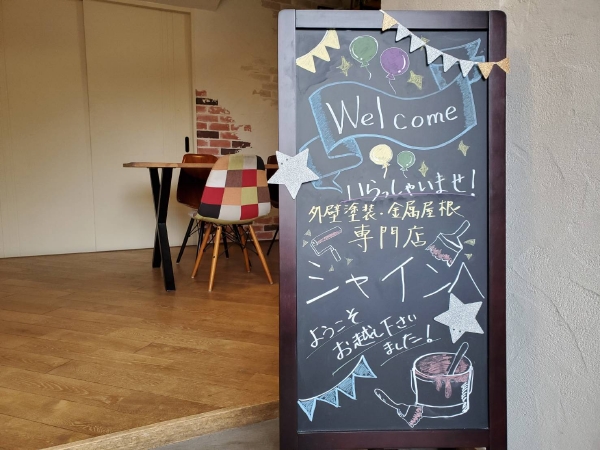 Welcome
いらっしゃいませ!
外壁塗装・金属屋根
専門店
シャイン
ようこそ
お越し下さい
ました!